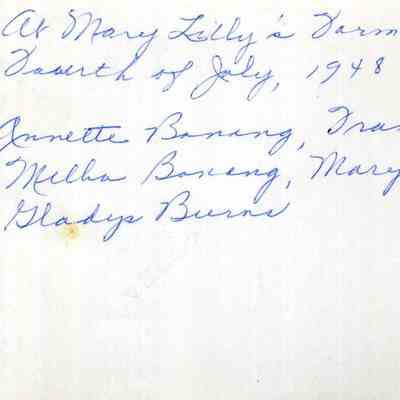 At Mary Lilly's Farm
Fourth of July, 1948
Annette Bonang, Fra
Melba Bonang, Mary
Gladys Burns